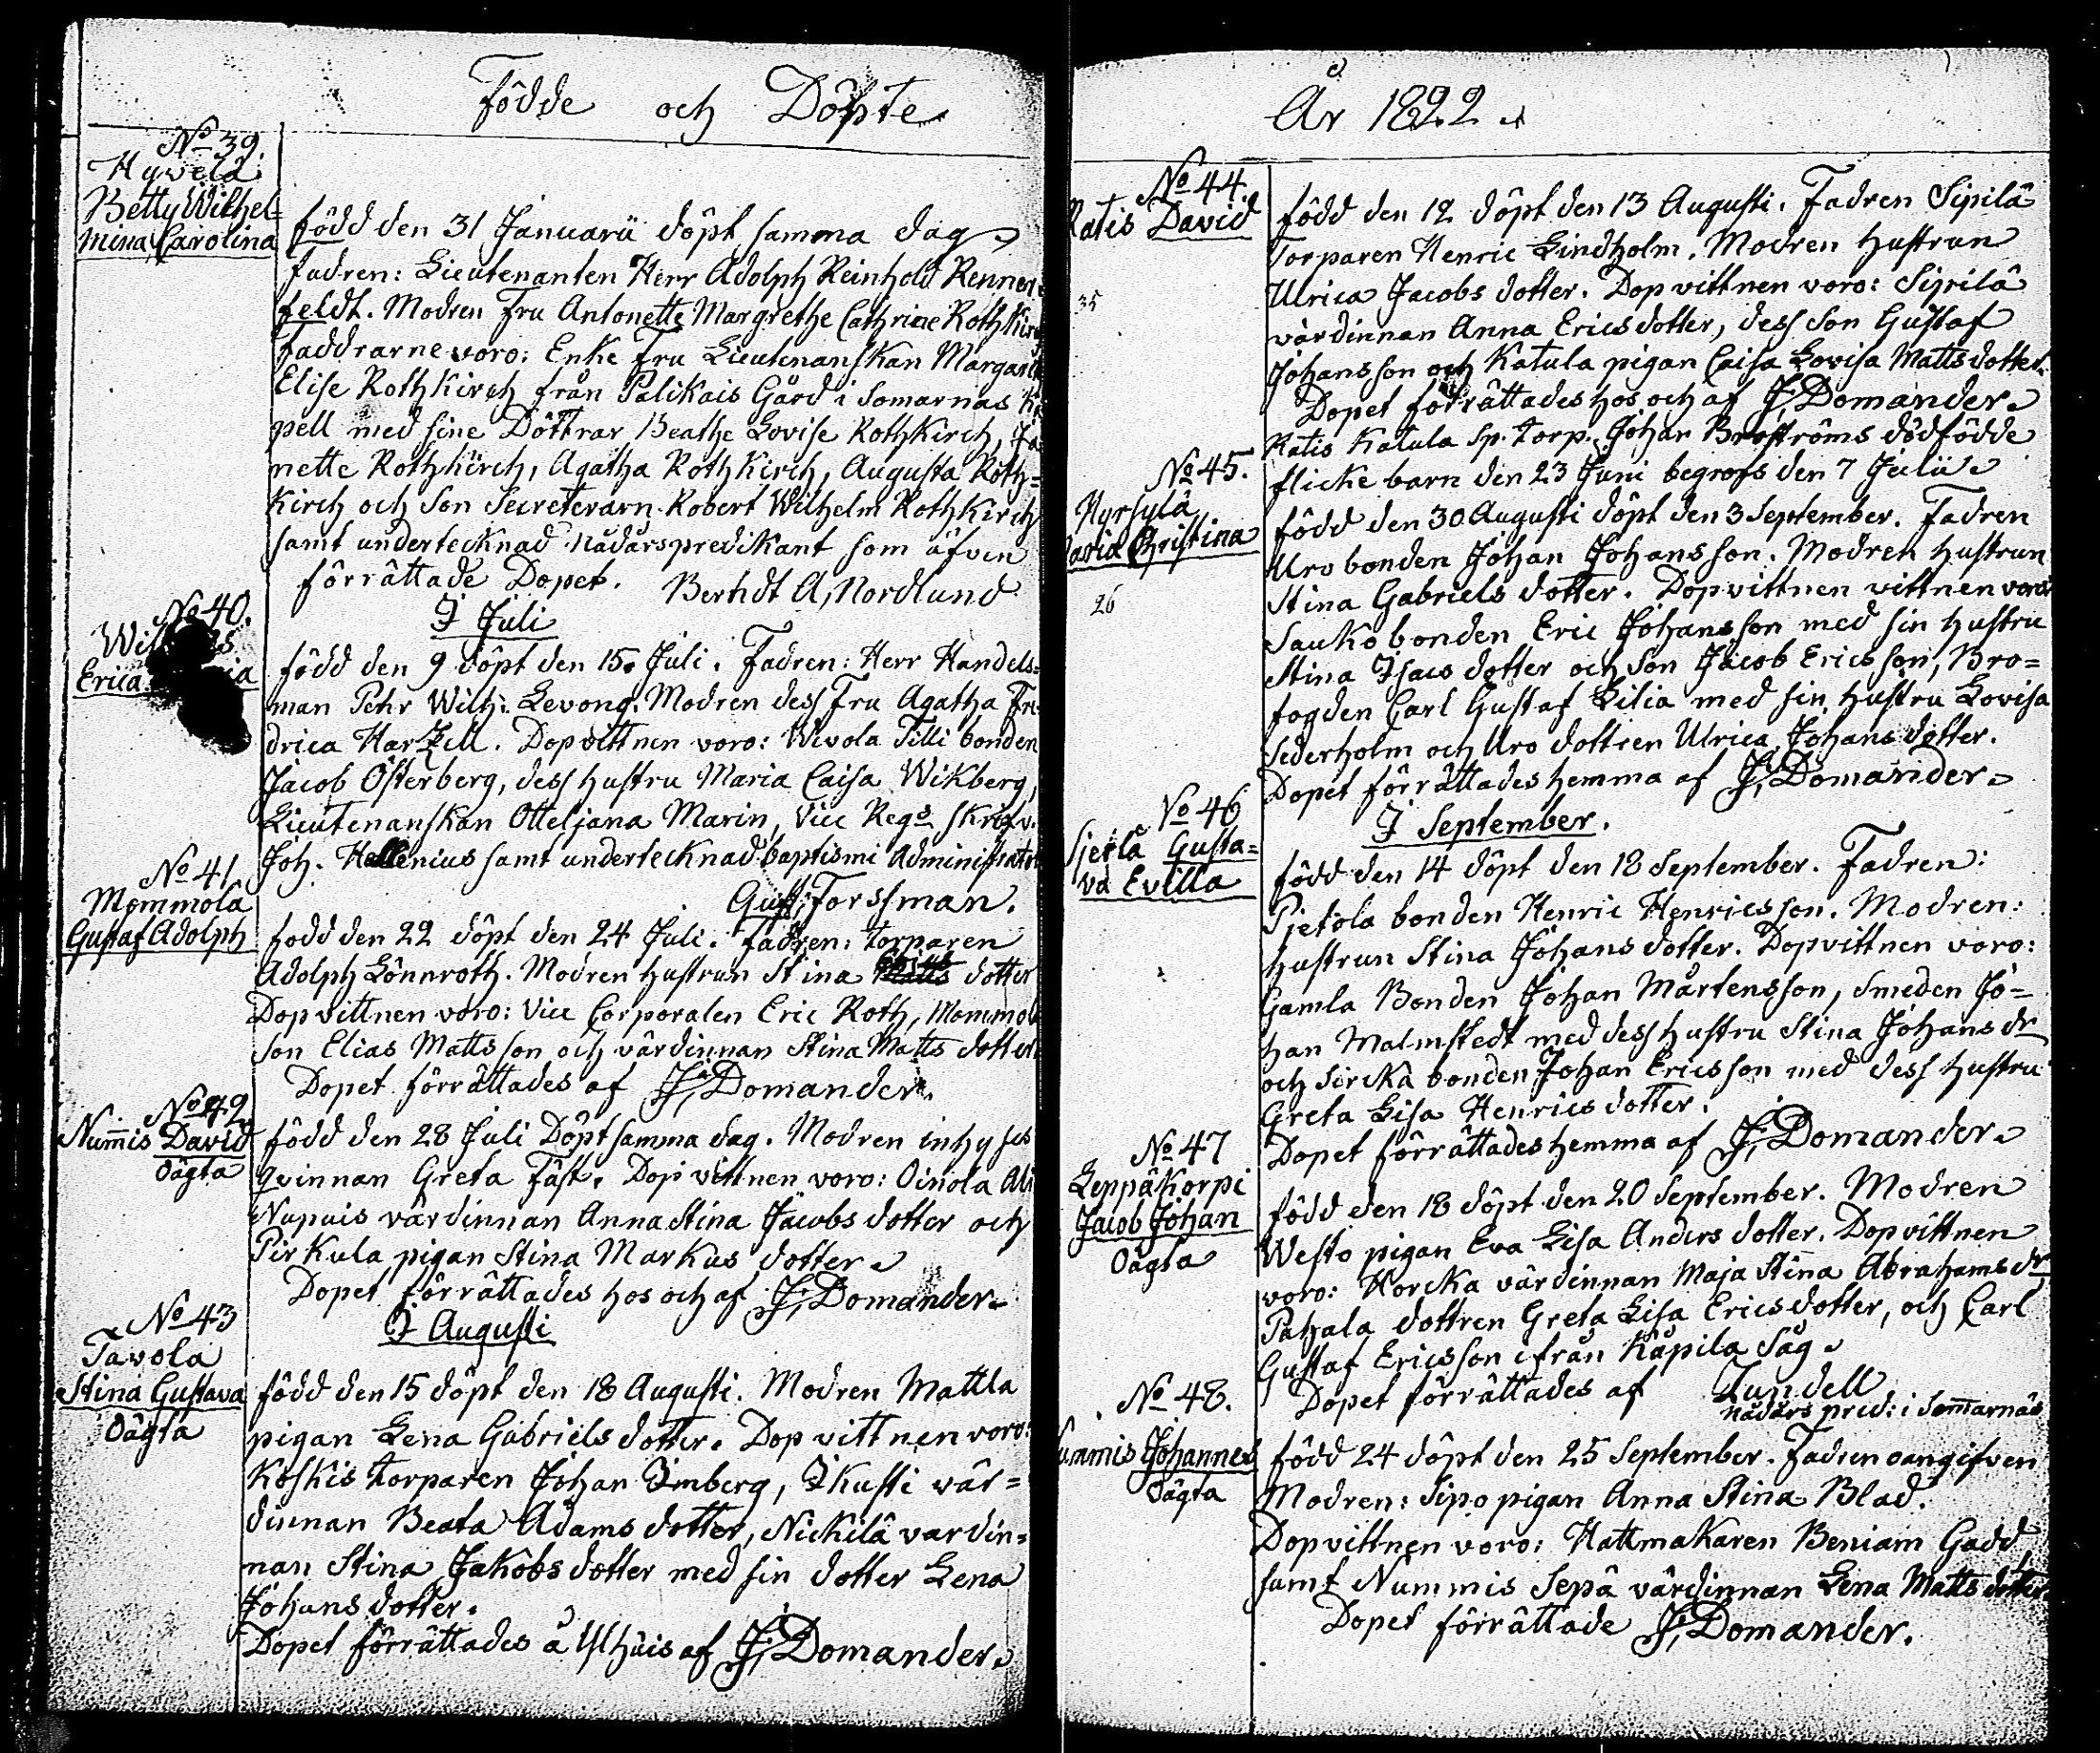 Födde och Döpte
No 39.
Hyvelä
Betty Wilhel=
mina Carolina
född den 31 Januarii döpt samma dag
Fadren: Lieutenanten Herr Adolph Reinhold Renner
feldt. Modren Fru Antonette Margrethe Cathrine Rothkir
Faddrarne voro: Enke Fru Lieutenanskan
Elise Rothkirch från Palikais Gård i Somarnäs
pell med sine Döttrar Beathe Lovise Rothkirch,
nette Rothkirch, Agatha Rothkirch, Augusta Roth=
kirch och Son Secreterarn Robert Wilhelm Rothkirch
samt undertecknad nådårspredikant som äfven
förrättade Dopet. Berndt A, Nordlund
I Juli
No 40.
Erica
född den 9 döpt den 15. Juli. Fadren: Herr Handels=
man Pehr Wilh: Levong. Modren dess Fru Agatha Fre
drica Hartzell. Dopvittnen voro: Wivola Tilli bonden
Jacob Österberg, dess hustru Maria Caisa Wikberg,
Lieutenanskan Otteljana Marin, Vice Regs skrifv.
Joh. Hellenius samt undertecknad baptismi Administrator
Gust: Forssman.
No 41.
Mommola
Gustaf Adolph
född den 22 döpt den 24 Juli. Fadren: Torparen
Adolph Lönnroth. Modren hustrun Stina dotter
Dopvittnen voro: Vice Corporalen Eric Roth, Mommola
son Elias Mattsson och värdinnan Stina Matts dotter
Dopet förrättades af J, Domander.
No 42.
Num̄is David
Oägta
född den 28 Juli Döpt samma dag. Modren inhyses
qvinnan Greta Fäst. Dopvittnen voro: Oinola Ali
Nupuis värdinnan Anna Stina Jacobs dotter och
Pirkula pigan Stina Markus dotter.
Dopet förrättades hos och af J, Domander.
I Augusti
No 43
Tavola
Stina Gustava
Oägta
född den 15 döpt den 18 Augusti. Modren Mattla
pigan Lena Gabriels dotter. Dopvittnen voro:
Koskis torparen Johan Imberg, Ikusti vär=
dinnan Beata Adams dotter, Nickilä värdin=
nan Stina Jakobs dotter med sin dotter Lena
Johans dotter.
Dopet förrättades å Ulhuis af J, Domander.
År 1822
No 44.
Ratis David
35
född den 12 döpt den 13 Augusti. Fadren Sipilä
Torparen Henric Lindholm. Modren hustrun
Ulrica Jacobs dotter. Dopvittnen voro: Sipilä
värdinnan Anna Erics dotter, dess son Gustaf
Johansson och Katula pigan Caisa Lovisa Matts dotter.
Dopet förrättades hos och af J, Domander.
Ratis Katula Sp. torp. Johan Broströms dödfödde
flicke barn den 23 Juni begrofs den 7 Julii.
No 45.
Hyrsylä
Maria Christina
26
född den 30 Augusti döpt den 3 September. Fadren
Uro bonden Johan Johansson. Modren hustrun
Stina Gabriels dotter. Dopvittnen vittnen voro
Sauko bonden Eric Johansson med sin hustru
Stina Isacs dotter och son Jacob Ericsson, Bro=
fogden Carl Gustaf Lilia med sin hustru Lovisa
Sederholm och Uro dottren Ulrica Johans dotter.
Dopet förrättades hemma af J, Domander.
I September.
No 46
Gusta=
va Evilla
född den 14 döpt den 18 September. Fadren:
Pjetola bonden Henric Henricsson. Modren:
hustrun Stina Johans dotter. Dopvittnen voro:
Gamla Bonden Johan Mårtensson, Smeden Jo=
han Malmstedt med dess hustru Stina Johans dr
och Sirckä bonden Johan Ericsson med dess hustru
Greta Lisa Henrics dotter.
Dopet förrättades hemma af J, Domander.
No 47
Leppäkorpi
Jacob Johan
Oägta
född den 18 döpt den 20 September. Modren
Westo pigan Eva Lisa Anders dotter. Dopvittnen
voro: Horcka värdinnan Maja Stina Abrahams dr
Pahala dottren Greta Lisa Ericsdotter, och Carl
Gustaf Ericsson ifrån Kåpila Såg.
Dopet förrättades af Lundell
nådårs pred: i Som̄arnäs
No 48.
Nummis Johannes
Oägta
född 24 döpt den 25 September. Fadren oangifven
Modren: Sipo pigan Anna Stina Blad.
Dopvittnen voro: Hattmakaren Beniam Gadd
samt Nummis Sepä värdinnan Lena Matts dotter
Dopet förrättade J, Domander.